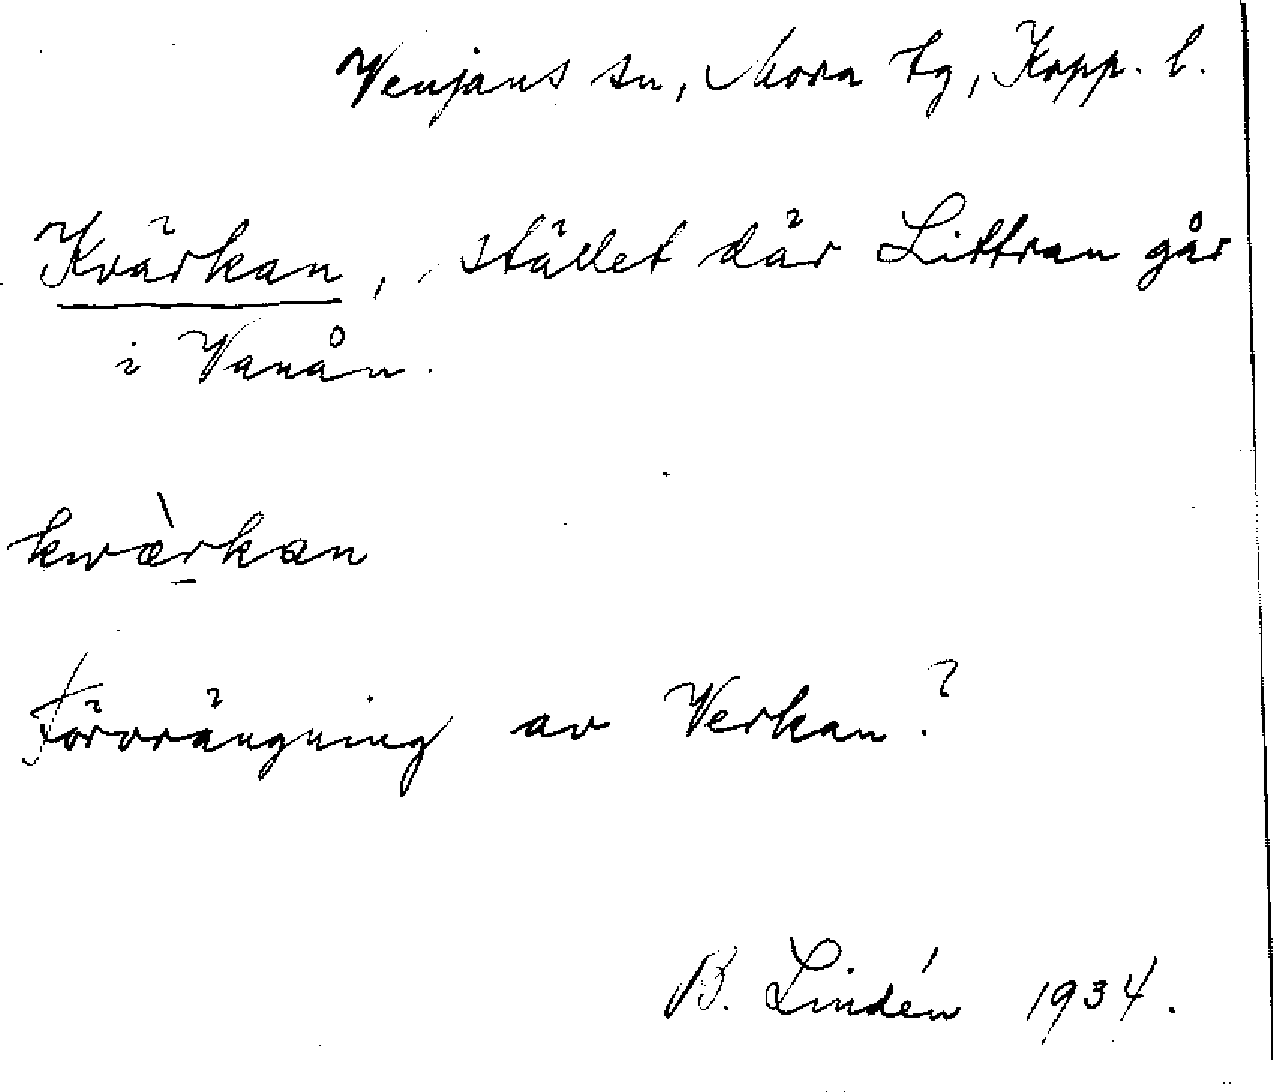 Venjans sn, Mora tg, Kopp. l.
Kvärkan, stället där Littran går
i Vanån.
kwæ̀rkan
Förvrängning av Verkan?
B. Lindén 1934.